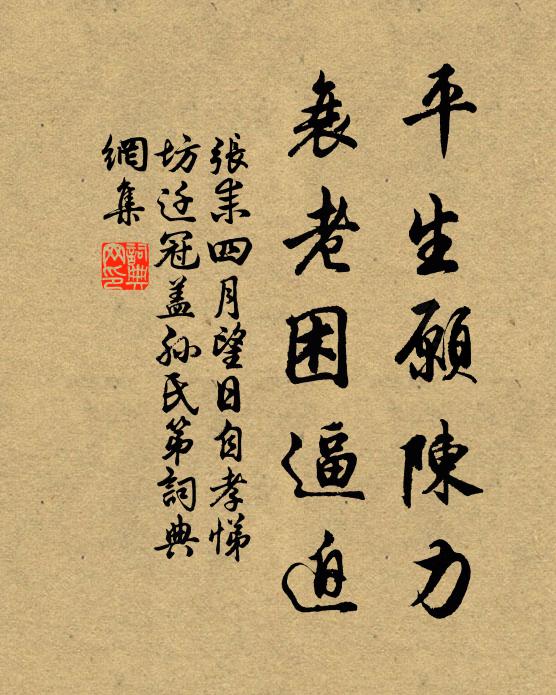 平生願陳力
衰老困逼迫
張耒四月望日自孝悌
坊迁冠盖孙氏第詞典
網集
詞典網印